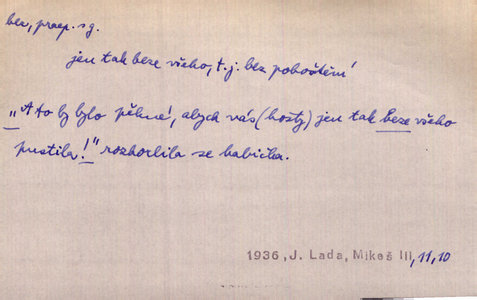 bez, praep. sg.
jen tak beze všeho, t. j. bez pohoštění
„A to by bylo pěkné, abych vás (hosty) jen tak beze všeho
pustila!" rozhorlila se babička.
1936, J. Lada, Mikeš III, 11, 10